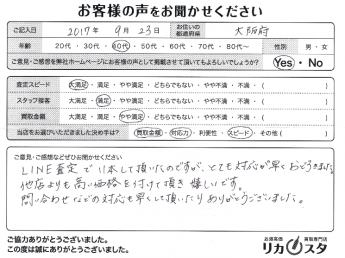 お客様の声をお聞かせください
ご記入日 2017年 9月 23日 お住いの都道府県 大阪府
年齢 20代 ・ 30代 ・ 40代 ・ 50代 ・ 60代 ・ 70代 ・ 80代～ 性別 男 ・ 女
ご意見・ご感想を弊社ホームページにお客様の声として掲載させて頂いてもよろしいでしょうか? Yes ・ No
査定スピード 大満足 ・ 満足 ・ やや満足 ・ どちらでもない ・ やや不満 ・ 不満 ・ ( )
スタッフ接客 大満足 ・ 満足 ・ やや満足 ・ どちらでもない ・ やや不満 ・ 不満 ・ ( )
買取金額 大満足 ・ 満足 ・ やや満足 ・ どちらでもない ・ やや不満 ・ 不満 ・ ( )
当店をお選びいただきました決め手は? 買取金額 ・ 対応力 ・ 利便性 ・ スピード ・ その他 ( )
ご意見・ご感想などぜひお聞かせください
LINE査定で1本して頂いたのですが、とても対応が早くおどろきました
他店よりも高い価格を付けて頂き 嬉しいです。
問い合わせなどの対応も早くして頂いたりありがとうございました。
ご協力ありがとうございました。
この度は誠にありがとうございました。
お酒高価買取専門店
リカスタ